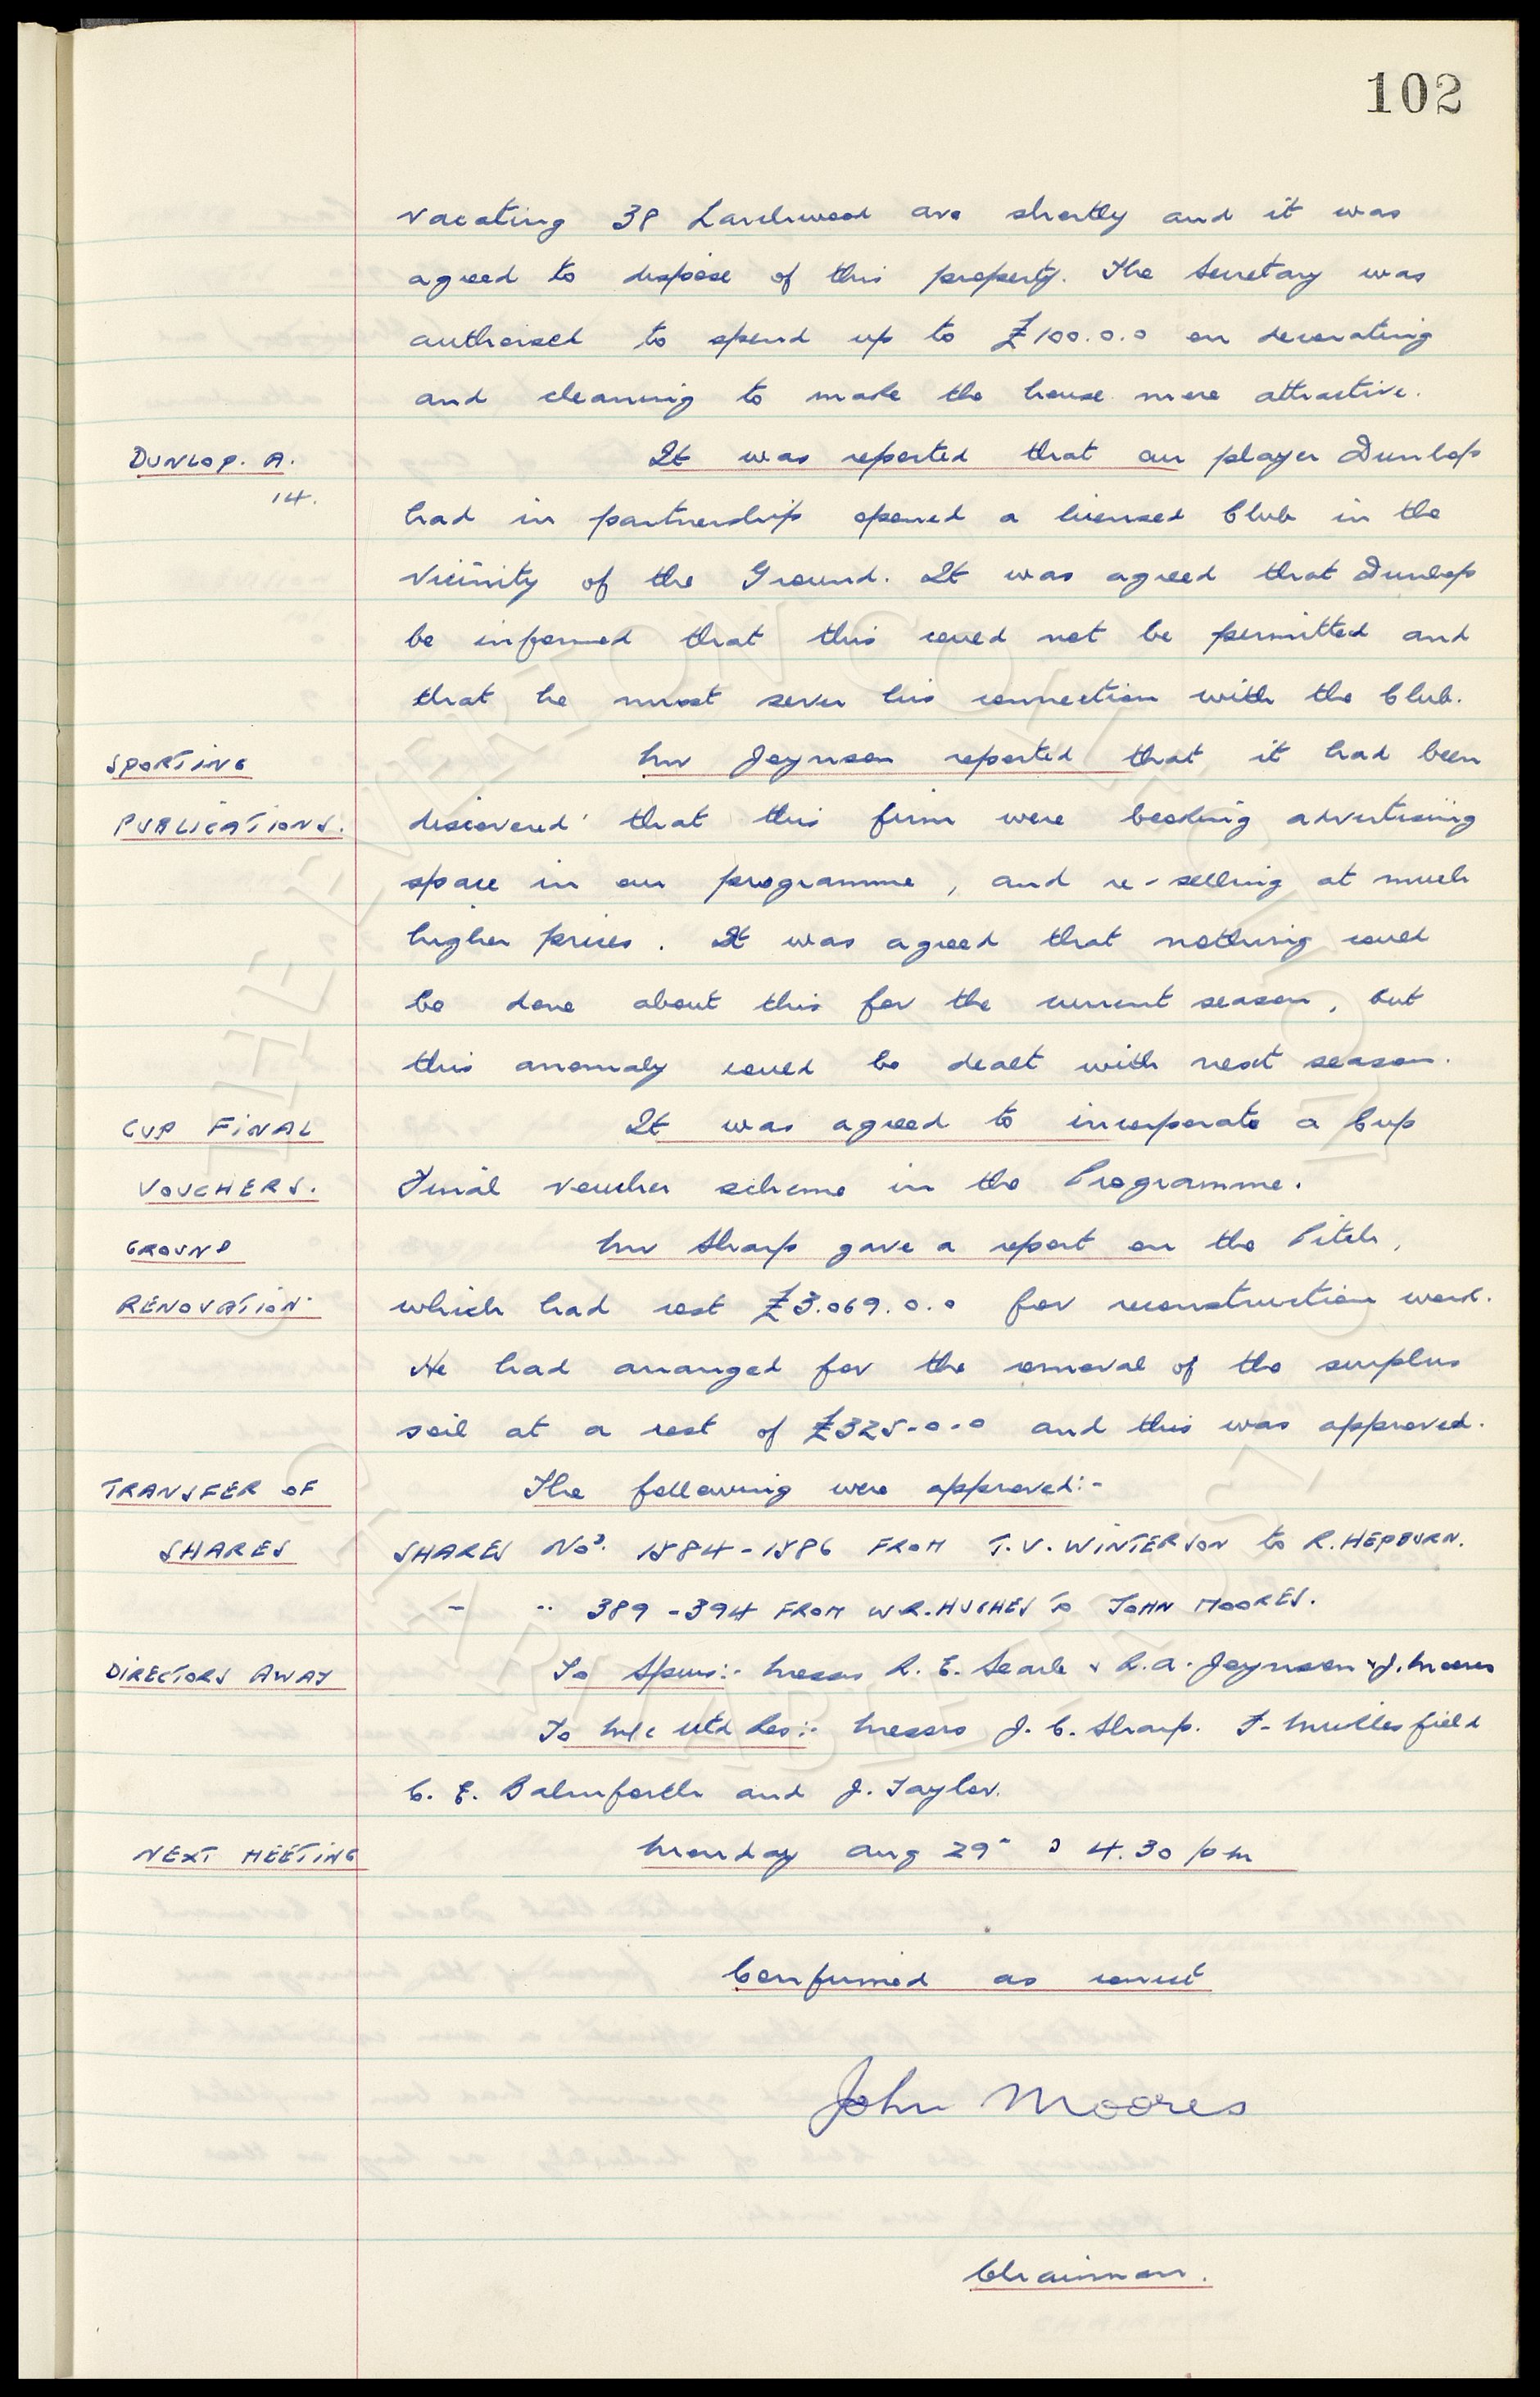 102
vacating 38 Larchwood ave shortly and it was
agreed to dispose of this property. The Secretary was
authorised to spend up to £100.0.0 on decorating
and cleaning to make the house more attractive.
DUNLOP. A. It was reported that our player Dunlop
14. had in partnership opened a licensed Club in the
vicinity of the Ground. It was agreed that Dunlop
be informed that this could not be permitted and
that he must sever his connection with the Club.
SPORTING Mr Joynson reported that it had been
PUBLICATIONS. discovered that this firm were booking advertising
space in our programme, and re-selling at much
higher prices. It was agreed that nothing could
be done about this for the current season, but
this anomaly could be dealt with next season.
CUP FINAL It was agreed to incorporate a Cup
VOUCHERS. Final voucher scheme in the Programme.
GROUND Mr Sharp gave a report on the Pitch,
RENOVATION which had cost £3.069.0.0 for reconstruction work.
He had arranged for the removal of the surplus
soil at a cost of £325-0-0 and this was approved.
TRANSFER OF The following were approved:-
SHARES SHARES Nos. 1584-1586 FROM T.V. WINTERSON to R. HEPBURN.
" " 389-394 FROM W.R. HUGHES to JOHN MOORES.
DIRECTORS AWAY To Spurs:- Messrs R. E. Searle & R.A. Joynson & J. Moores
To M/c Utd Res:- Messrs J. C. Sharp. F. Micklesfield
C. E. Balmforth and J. Taylor.
NEXT MEETING Monday Aug 29" 4.30 pm
Confirmed as correct
John Moores
Chairman.